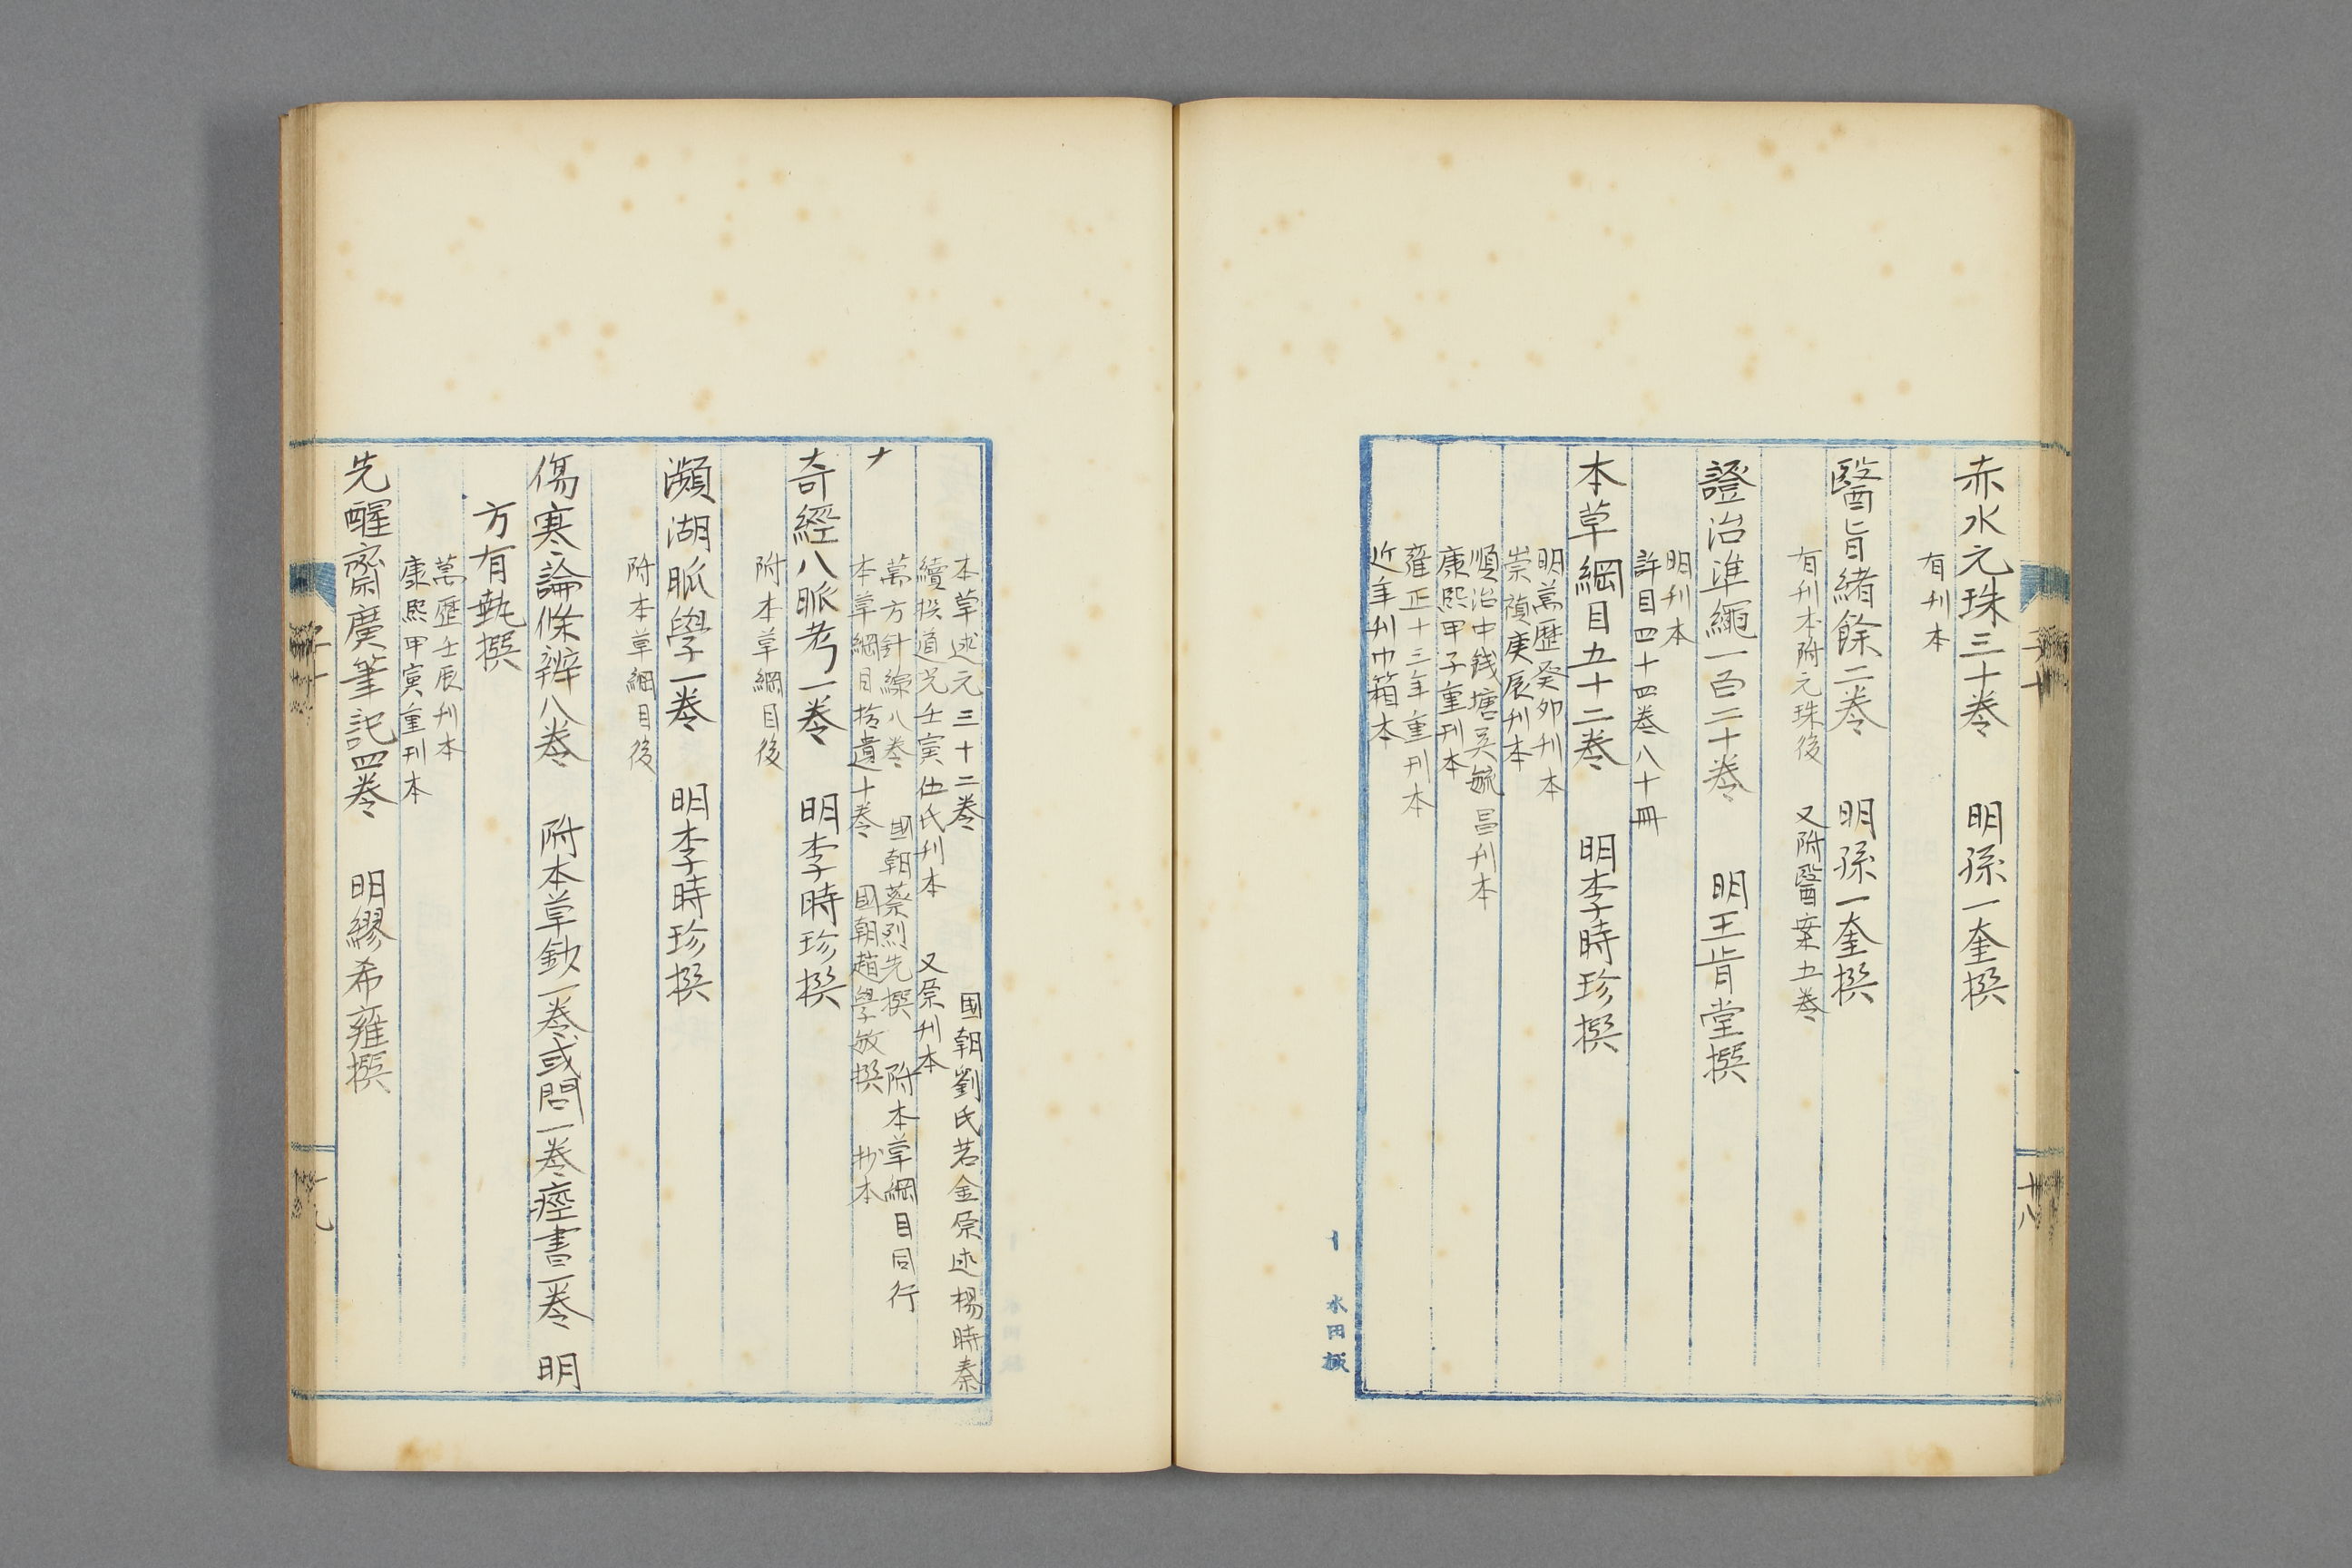 赤水元珠三十卷 明孫一奎撰
有刊本
醫旨緒餘二卷 明孫一奎撰
有刊本附元珠後 又附醫案五卷
證治準繩一百二十卷 明王肯堂撰
明刊本
許目四十四卷八十冊
本草綱目五十二卷 明李時珍撰
明萬歷癸卯刊本
崇禎庚辰刊本
順治中錢塘吳毓昌刊本
康熙甲子重刊本
雍正十三年重刊本
近年刊巾箱本
十八
本草述元三十二卷 國朝劉氏若金原述楊時泰
續撰道光壬寅伍氏刊本 又原刊本
萬方針線八卷 國朝蔡烈先撰 附本草綱目同行
本草綱目拾遺十卷 國朝趙學敏撰 抄本
奇經八脈考一卷 明李時珍撰
附本草綱目後
瀕湖脈學一卷 明李時珍撰
附本草綱目後
傷寒論條辨八卷 附本草鈔一卷或問一卷痙書一卷 明
方有執撰
萬歷壬辰刊本
康熙甲寅重刊本
先醒齋廣筆記四卷 明繆希雍撰